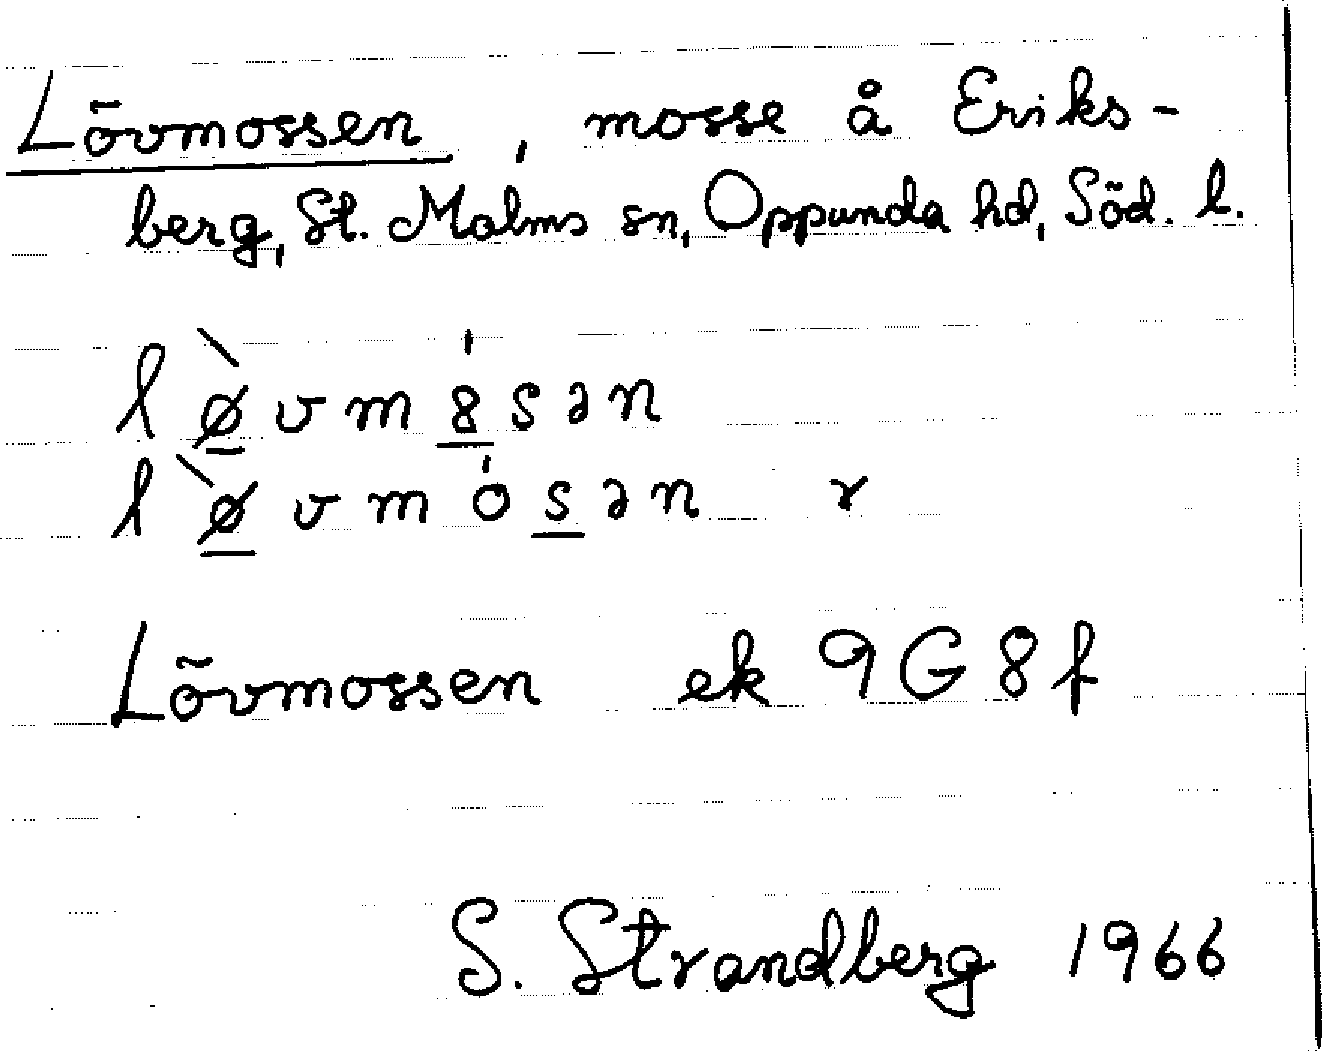 Lövmossen, mosse å Eriks-
berg, St. Malms sn, Oppunda hd, Söd. l.
lø̀vm8́sən
lø̀vmósən r
Lövmossen ek 9G8f
S. Strandberg 1966